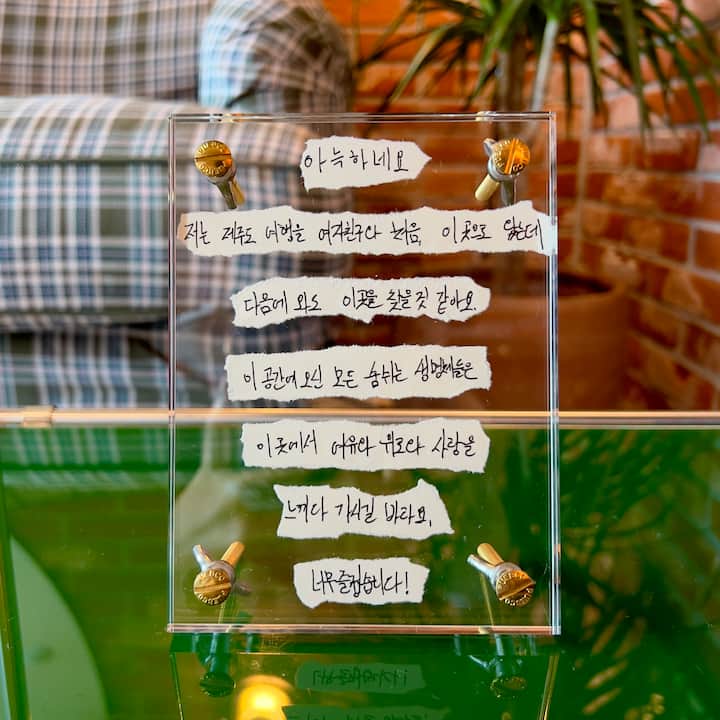 아늑하네요
저는 제주도 여행을 여자친구와 처음, 이곳으로 왔는데
다음에 와도 이곳을 찾을것 같아요.
이 공간에 오신 모든 숨쉬는 생명체들은
이곳에서 여유와 위로와 사랑을
느끼다 가시길 바라요.
너무 즐겁습니다!